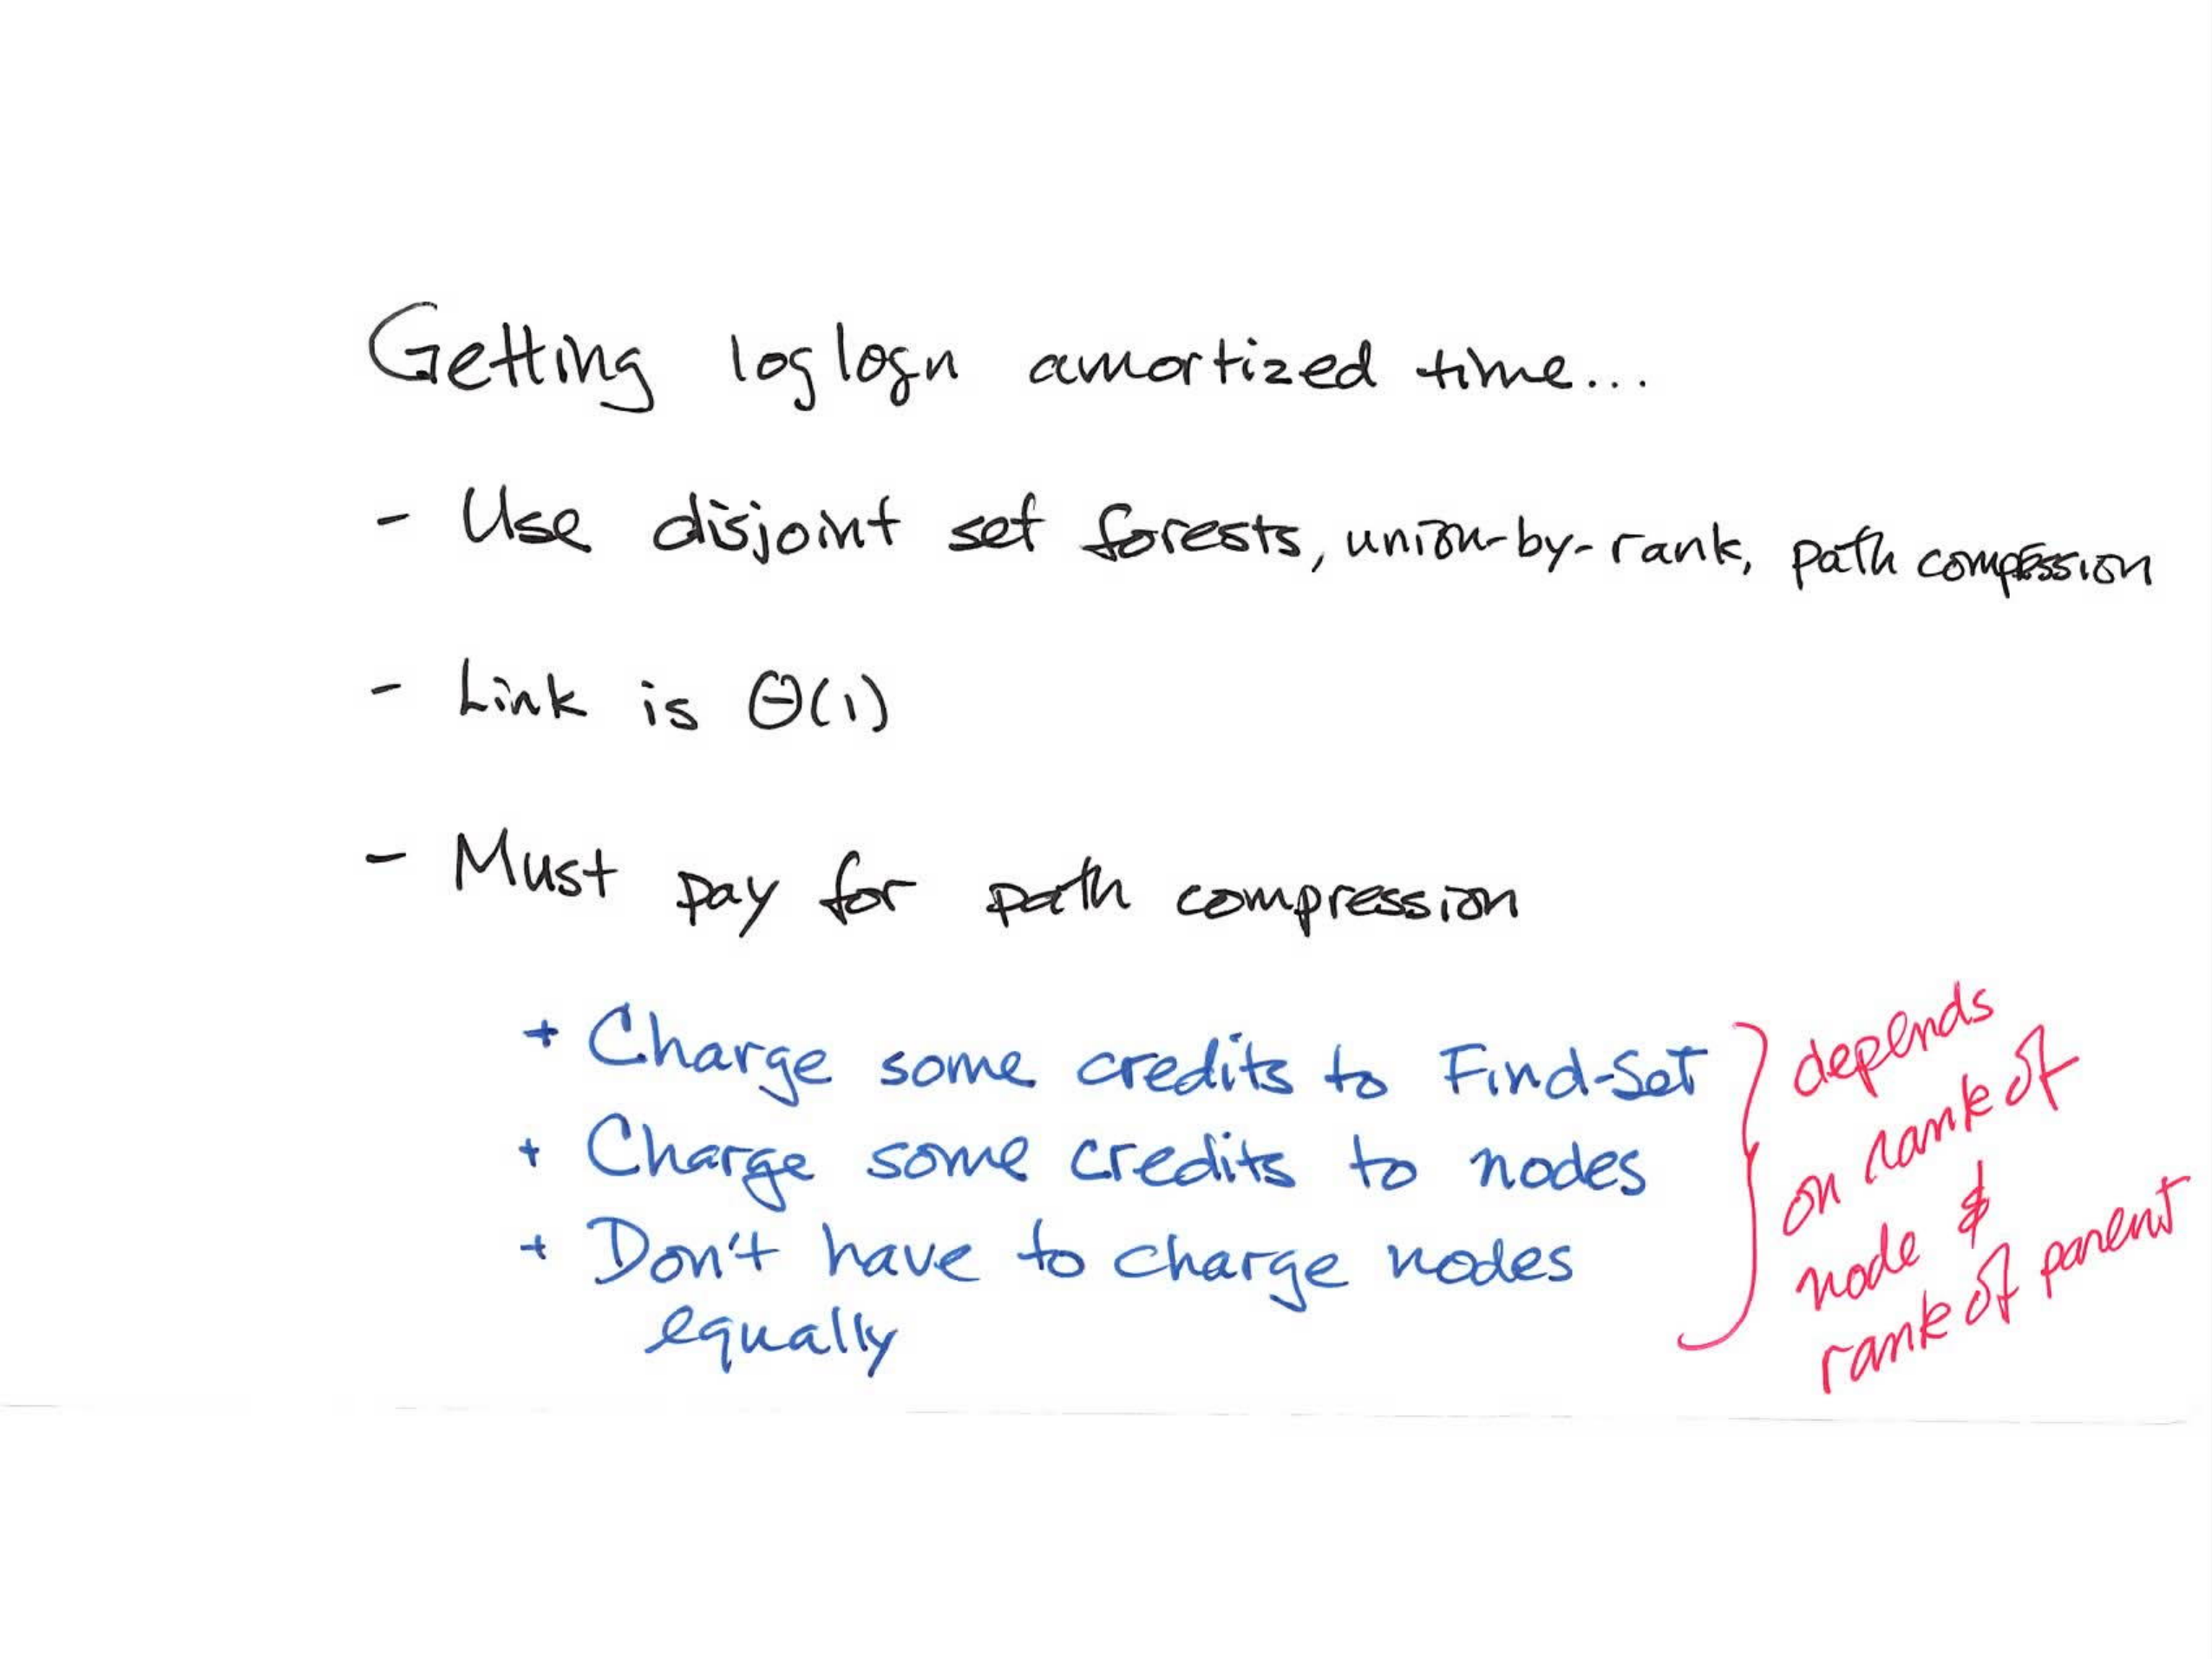 Getting loglogn amortized time...
- Use disjoint set forests, union-by-rank, path compession
- Link is Θ(1)
- Must pay for path compression
+ Charge some credits to Find-Set
+ Charge some credits to nodes
+ Don't have to charge nodes
equally
depends
on rank of
node &
rank of parent